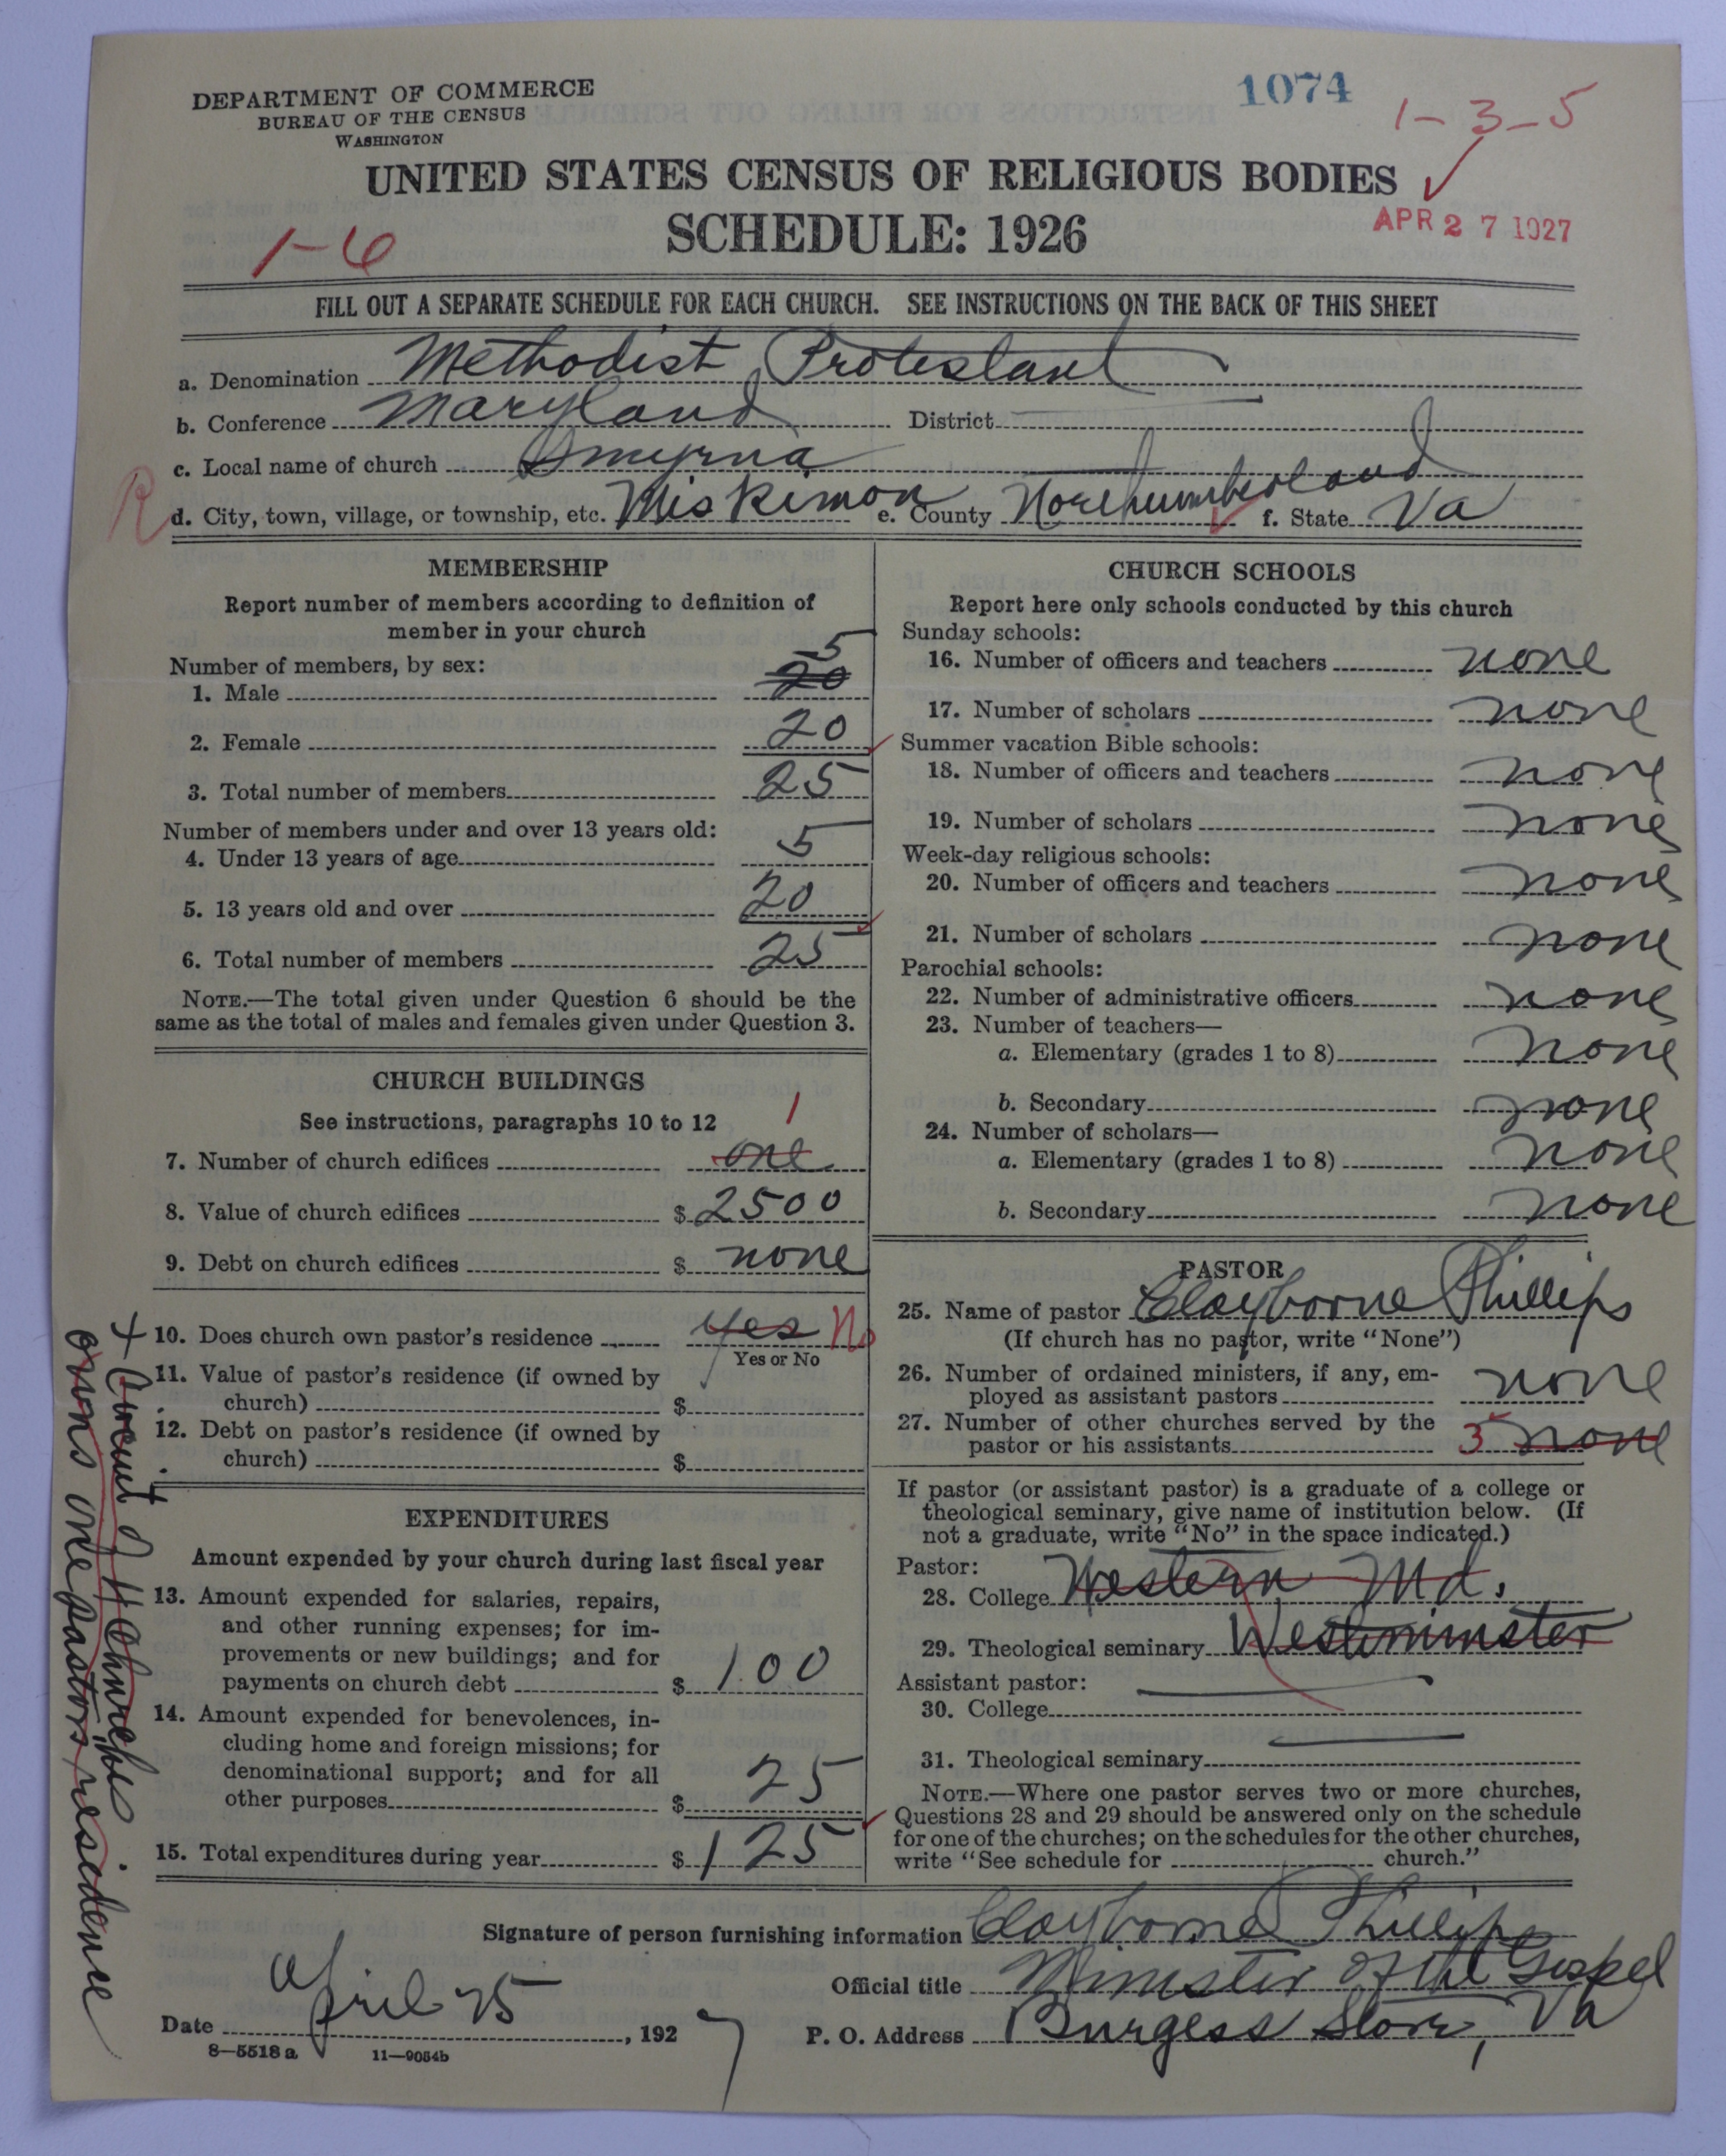 DEPARTMENT OF COMMERCE
BUREAU OF THE CENSUS
WASHINGTON
1074
1-3-5
UNITED STATES CENSUS OF RELIGIOUS BODIES
SCHEDULE: 1926
APR 27 1927
1-6
FILL OUT A SEPARATE SCHEDULE FOR EACH CHURCH. SEE INSTRUCTIONS ON THE BACK OF THIS SHEET
a. Denomination Methodist Protestant
b. Conference Maryland District
c. Local name of church Smyrna
R
d. City, town, village, or township, etc. Miskimon e. County Northumberland f. State Va
MEMBERSHIP
Report number of members according to definition of
member in your church
Number of members, by sex:
5
1. Male 20
2. Female 20
3. Total number of members 25
Number of members under and over 13 years old:
4. Under 13 years of age 5
5. 13 years old and over 20
6. Total number of members 25
NOTE.—The total given under Question 6 should be the
same as the total of males and females given under Question 3.
CHURCH BUILDINGS
See instructions, paragraphs 10 to 12
1
7. Number of church edifices one
8. Value of church edifices $ 2500
9. Debt on church edifices $ none
10. Does church own pastor's residence yes No
Yes or No
11. Value of pastor's residence (if owned by
church) $
12. Debt on pastor's residence (if owned by
church) $
+ Circuit of 4 Churches
owns one pastors residence
EXPENDITURES
Amount expended by your church during last fiscal year
13. Amount expended for salaries, repairs,
and other running expenses; for im-
provements or new buildings; and for
payments on church debt $ 100
14. Amount expended for benevolences, in-
cluding home and foreign missions; for
denominational support; and for all
other purposes $ 25
15. Total expenditures during year $ 125
CHURCH SCHOOLS
Report here only schools conducted by this church
Sunday schools:
16. Number of officers and teachers none
17. Number of scholars none
Summer vacation Bible schools:
18. Number of officers and teachers none
19. Number of scholars none
Week-day religious schools:
20. Number of officers and teachers none
21. Number of scholars none
Parochial schools:
22. Number of administrative officers none
23. Number of teachers—
a. Elementary (grades 1 to 8) none
b. Secondary none
24. Number of scholars—
a. Elementary (grades 1 to 8) none
b. Secondary none
PASTOR
25. Name of pastor Clayborne Phillips
(If church has no pastor, write "None")
26. Number of ordained ministers, if any, em-
ployed as assistant pastors none
27. Number of other churches served by the
pastor or his assistants 3 none
If pastor (or assistant pastor) is a graduate of a college or
theological seminary, give name of institution below. (If
not a graduate, write "No" in the space indicated.)
Pastor:
28. College Western Md.
29. Theological seminary Westminster
Assistant pastor:
30. College
31. Theological seminary
NOTE.—Where one pastor serves two or more churches,
Questions 28 and 29 should be answered only on the schedule
for one of the churches; on the schedules for the other churches,
write "See schedule for church."
Signature of person furnishing information Clayborne Phillips
Official title Minister of the Gospel
Date April 25, 1927
P. O. Address Burgess Store, Va
8—5518 a 11—9054b